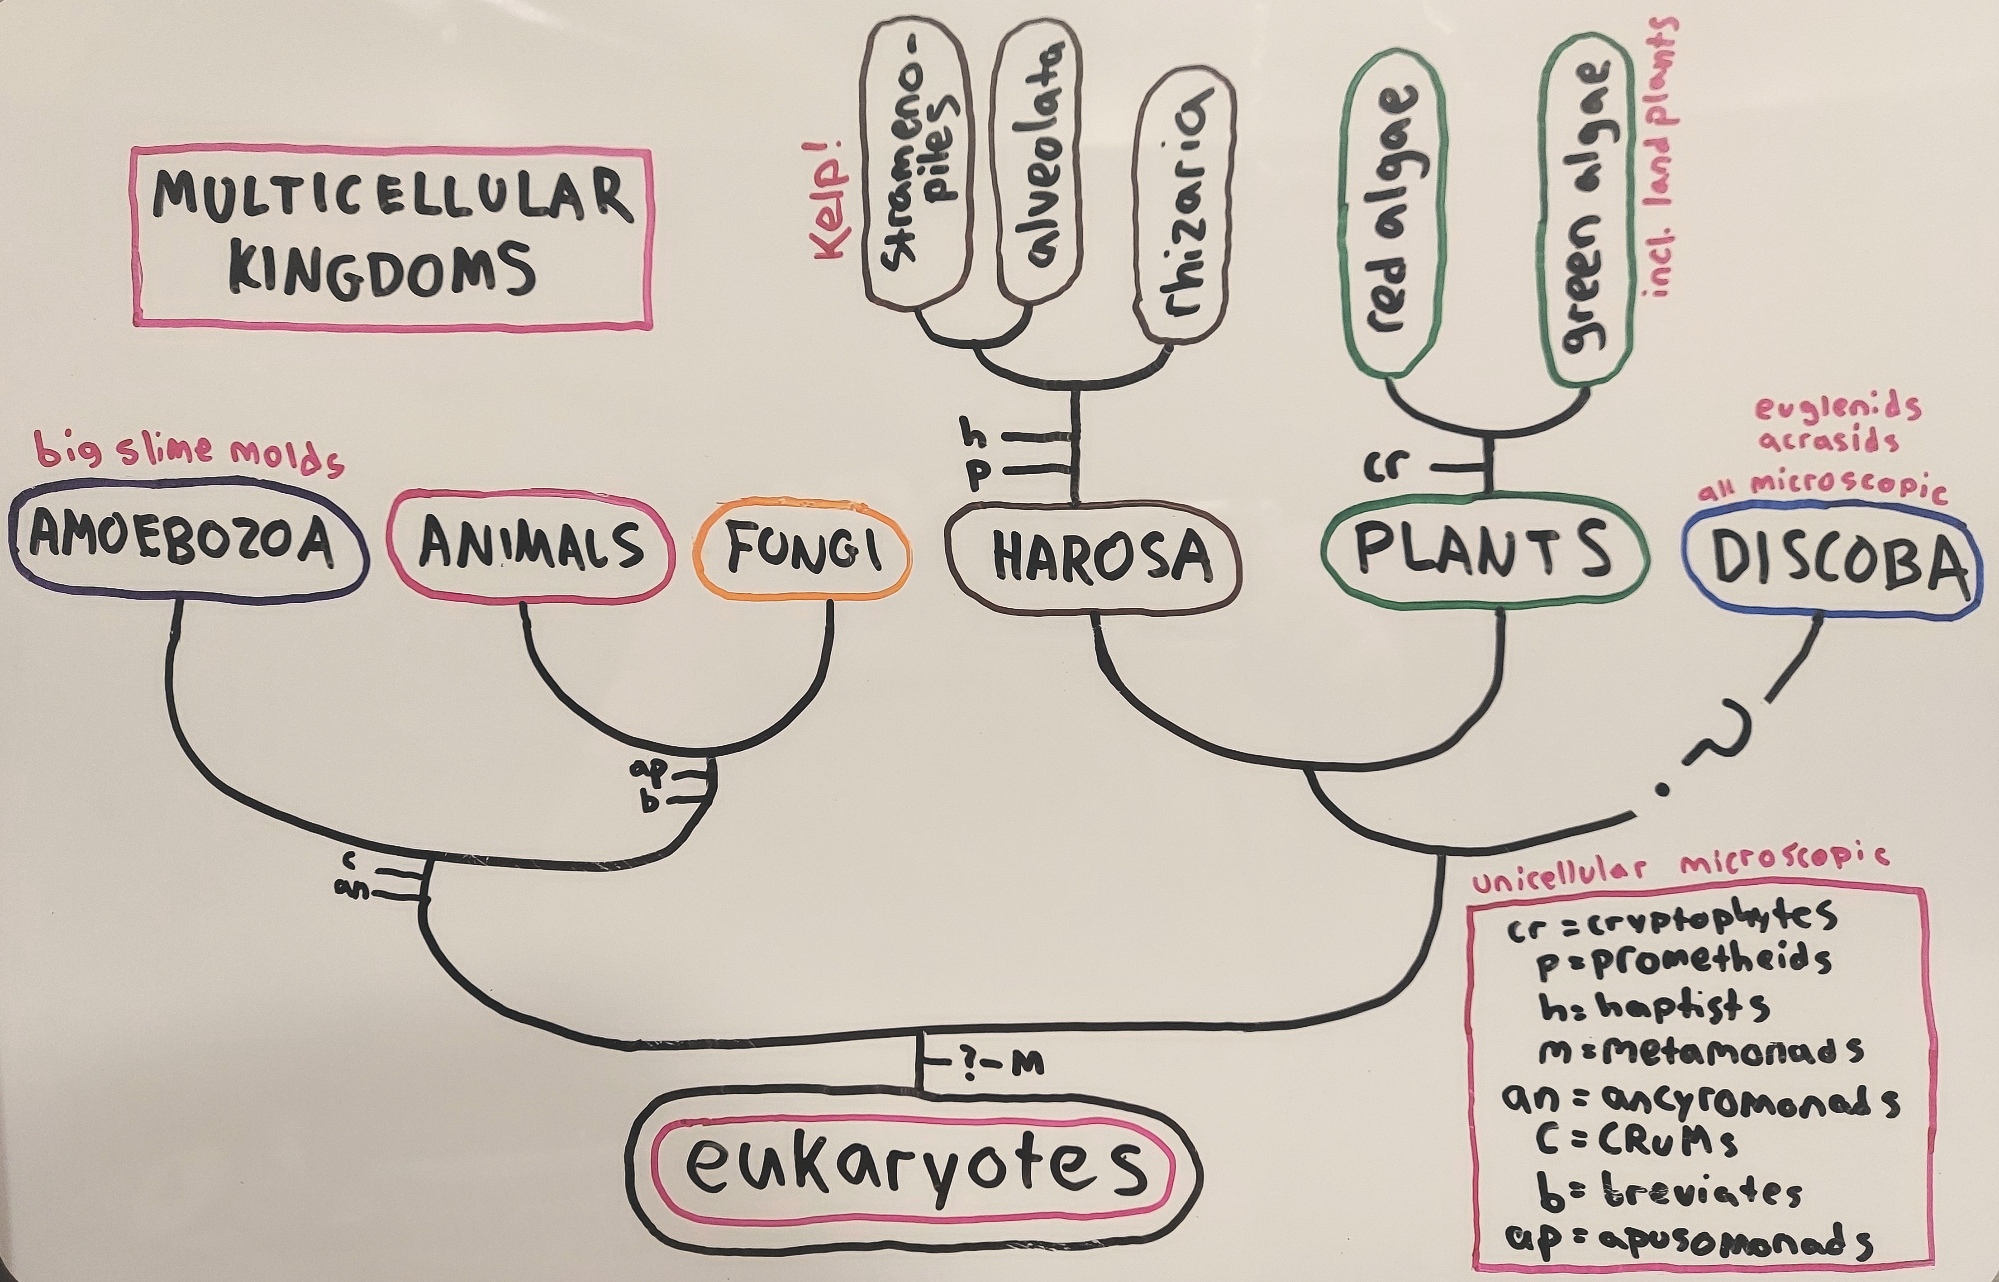 MULTICELLULAR
KINGDOMS
Kelp!
Strameno-
piles
alveolata
rhizaria
red algae
green algae
incl. land plants
h
p
cr
euglenids
acrasids
all microscopic
big slime molds
AMOEBOZOA
ANIMALS
FUNGI
HAROSA
PLANTS
DISCOBA
ap
b
?
c
an
?-M
eukaryotes
unicellular microscopic
cr = cryptophytes
p = prometheids
h = haptists
m = metamonads
an = ancyromonads
C = CRuMs
b = breviates
ap = apusomonads